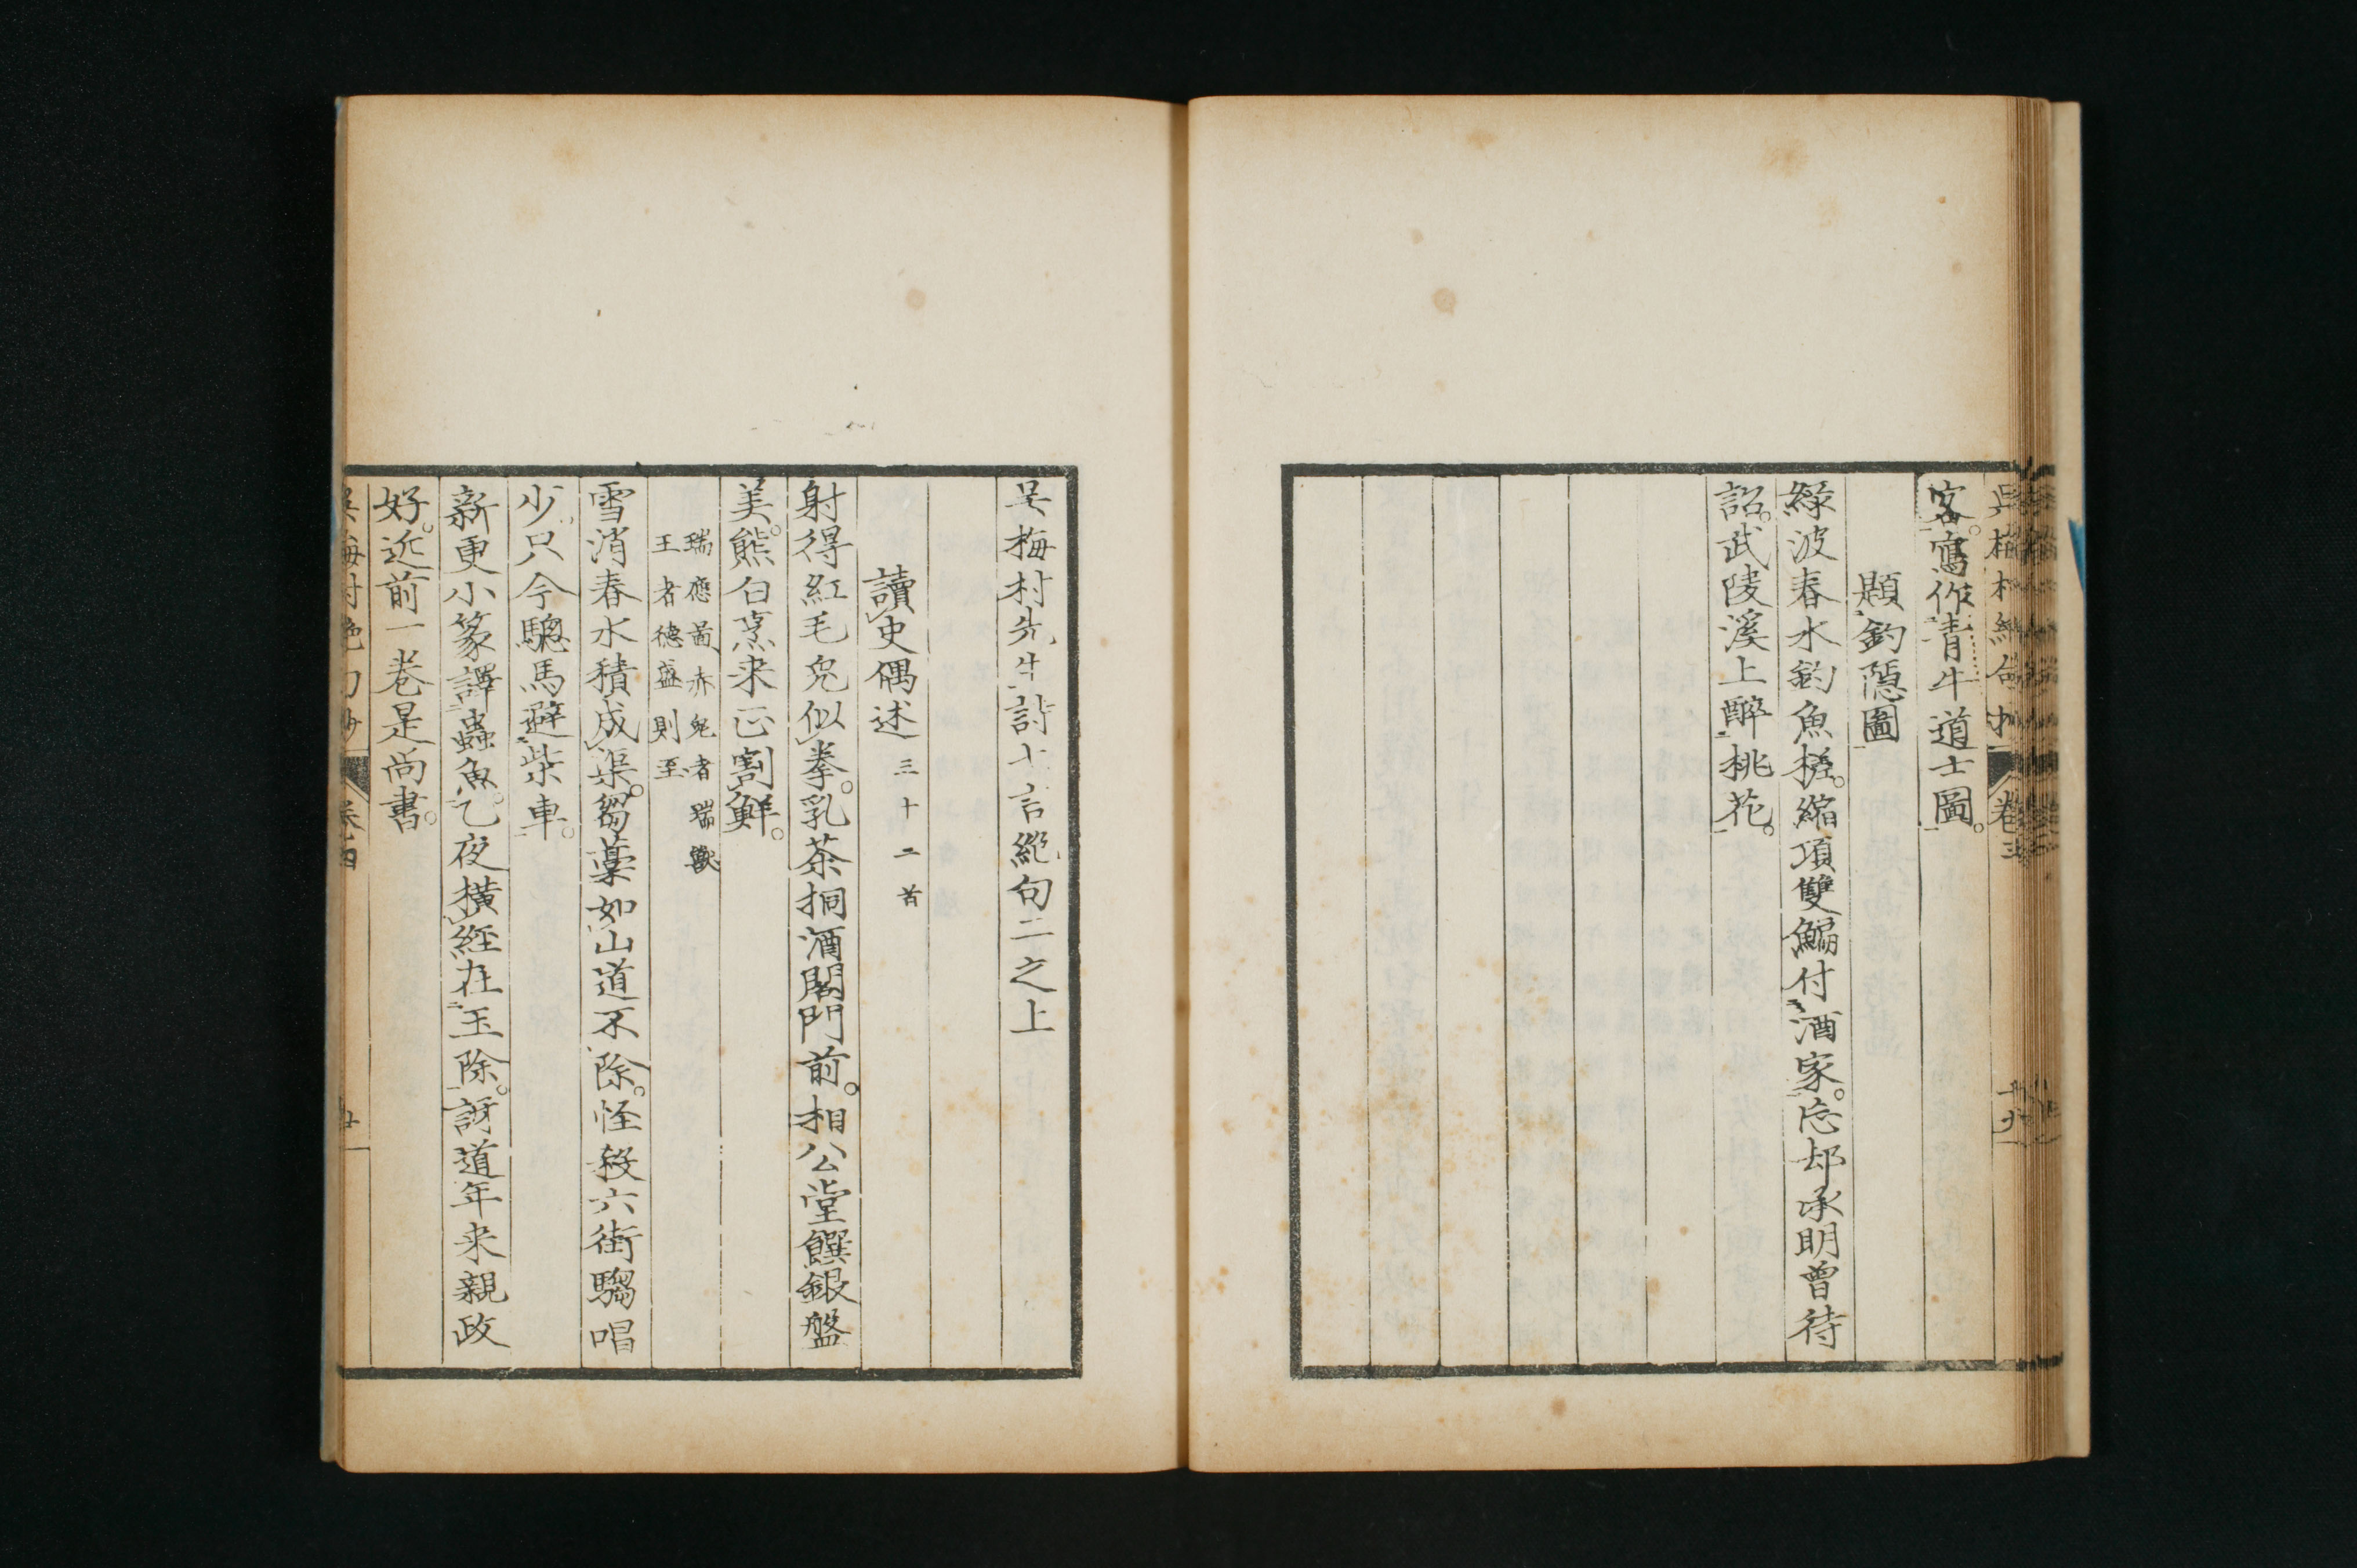 客。寫作青牛道士圖。
題釣隱圖
綠波春水釣魚槎。縮項雙鯿付酒家。忘却承明曾待
詔。武陵溪上醉桃花。
吴梅村先生詩七言絶句二之上
讀史偶述三十二首
射得紅毛兔似拳。乳茶挏酒閣門前。相公堂饌銀盤
美。熊白烹来正割鮮。
瑞應圖赤兔者瑞獸
王者德盛則至
雪消春水積成渠。芻藁如山道不除。怪殺六街騶唱
少。只今驄馬避柴車。
新更小篆譯蟲魚。乙夜橫經在玉除。訝道年来親政
好。近前一卷是尚書。